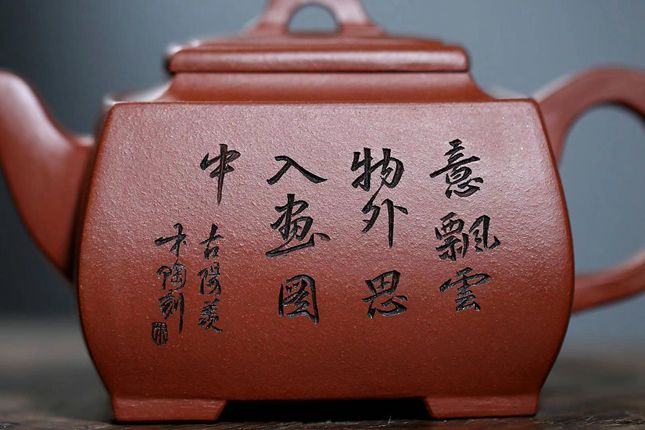 意飘雲
物外思
入画圖
中
古陽羨
木陶刻